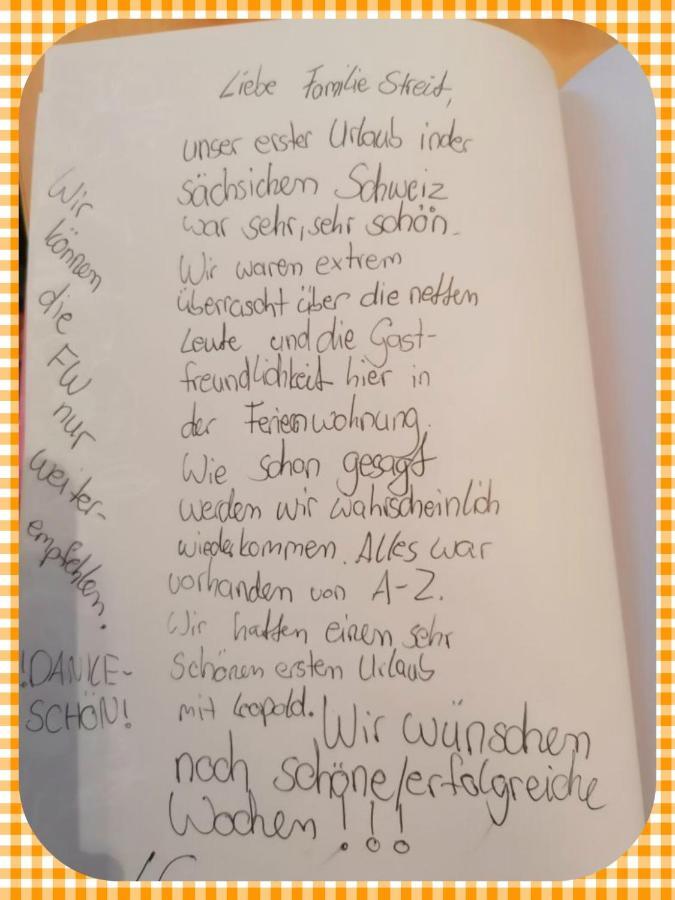 Liebe Familie Streit,
unser erster Urlaub in der
sächsichen Schweiz
war sehr, sehr schön.
Wir waren extrem
überrascht über die netten
Leute und die Gast-
freundlichkeit hier in
der Ferienwohnung.
Wie schon gesagt
werden wir wahrscheinlich
wiederkommen. Alles war
vorhanden von A-Z.
Wir hatten einen sehr
schönen ersten Urlaub
mit Leopold. Wir wünschen
noch schöne/erfolgreiche
Wochen!!!
Wir
können
die
FW
nur
weiter-
empfehlen.
!DANKE-
SCHÖN!